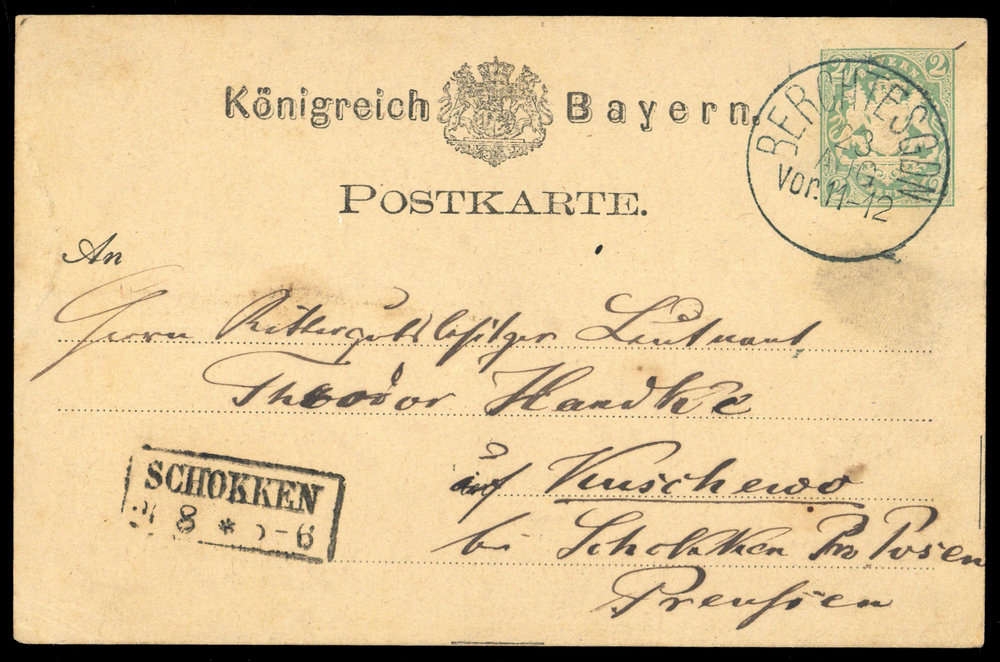 Königreich Bayern.
POSTKARTE.
2
BERCHTESGDN
23
AUG.
Vor. 11-12
An
Herrn Rittergutsbesitzer Leutnant
Theodor Handke
auf Kuschewo
SCHOKKEN
8 * 5-6
bei Schokken Pro Posen
Preussen